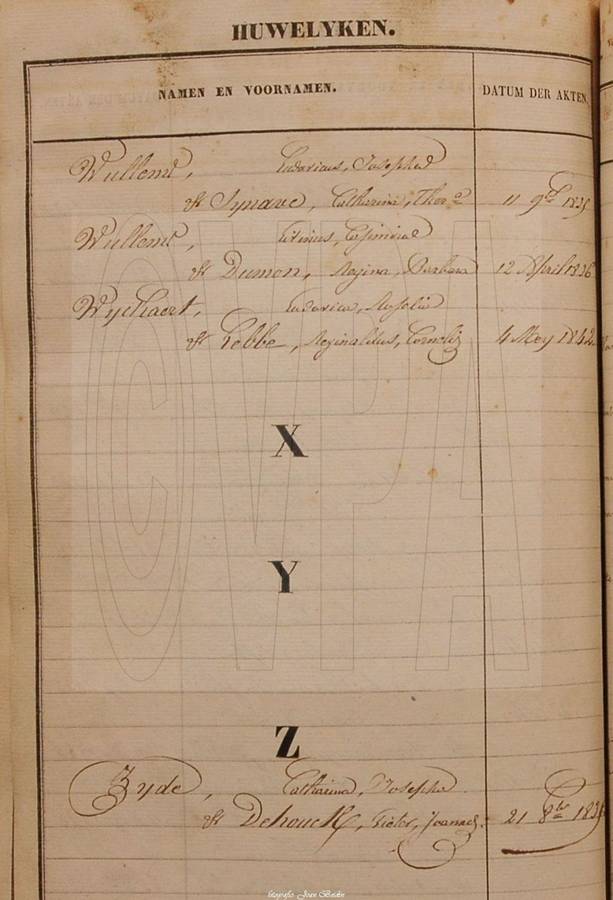 HUWELYKEN.
NAMEN EN VOORNAMEN. DATUM DER AKTEN.
Wullems, Ludovicus, Josephus
& Synave, Catharina, Ther.a 11 9bre 1835
Wullems, Livinus, Casimirus
& Dumon, Regina, Barbara 12 April 1836
Wyckaert, Ludovica, Rosalia
& Lobbe, Reginaldus, Cornelis 4 Mey 1842
X
Y
Z
Zyde, Catharina, Josepha
& Dehouck, Victor, Joannes 21 8bre
CVPA
fotografie Joan Bardin